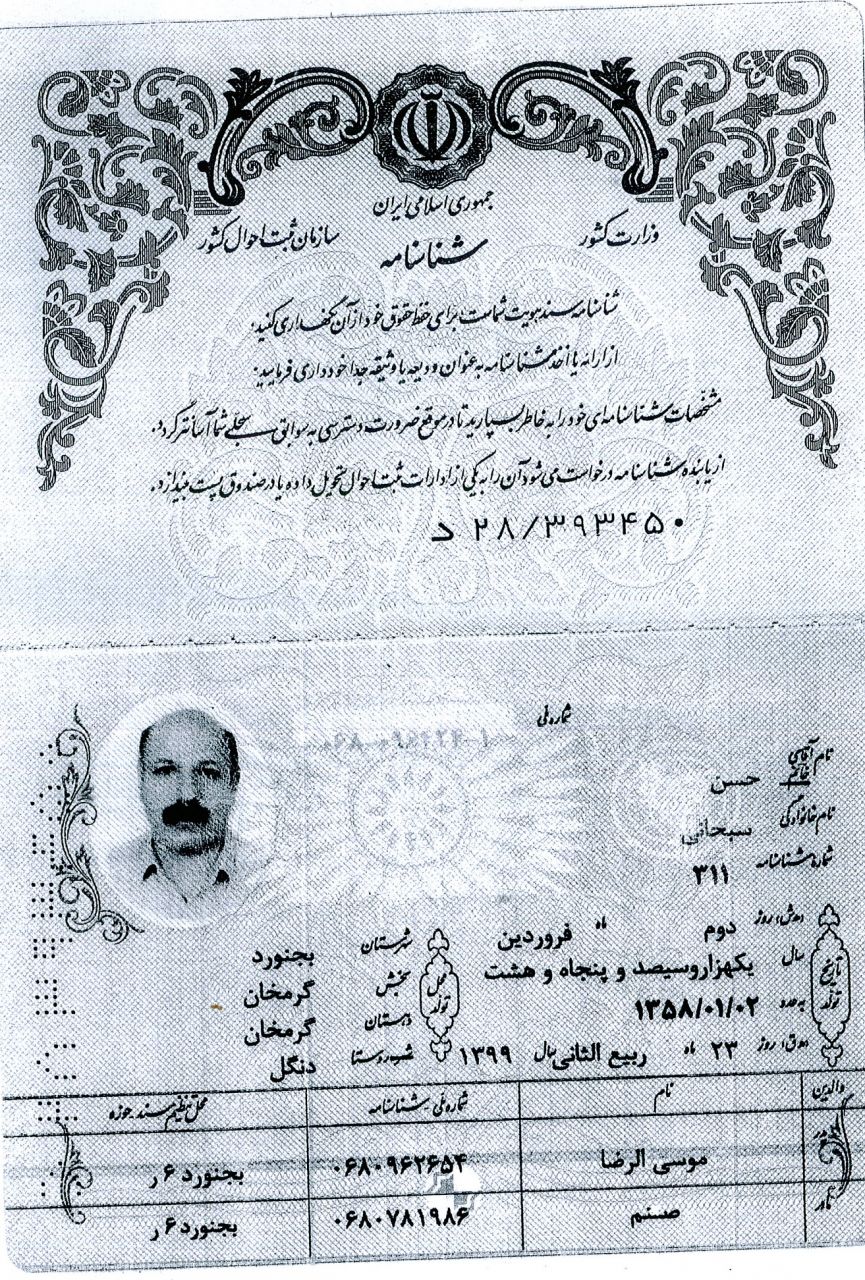 جمهوری اسلامی ایران
وزارت کشور
سازمان ثبت احوال کشور
شناسنامه
شناسنامه سند هویت شماست، برای حفظ حقوق خود از آن نگهداری کنید.
از ارائه یا اخذ شناسنامه به عنوان ودیعه یا وثیقه جداً خودداری فرمایید.
مشخصات شناسنامه‌ای خود را به خاطر بسپارید تا در موقع ضرورت دسترسی به سوابق سجلی شما آسانتر گردد.
از یابنده شناسنامه درخواست می‌شود آن را به یکی از ادارات ثبت احوال تحویل داده یا در صندوق پست بیندازد.
د ۲۸/۳۹۳۴۵۰
شماره ملی
نام آقای خانم حسن
نام خانوادگی سبحانی
شماره شناسنامه ۳۱۱
تاریخ تولد
روز دوم ماه فروردین
سال یکهزاروسیصد و پنجاه و هشت
به عدد ۱۳۵۸/۰۱/۰۲
روز ۲۳ ماه ربیع الثانی سال ۱۳۹۹
محل تولد
شهرستان بجنورد
بخش گرمخان
دهستان گرمخان
شهر-روستا دنگل
والدین نام شماره ملی-شناسنامه محل تنظیم سند-حوزه
پدر موسی الرضا ۰۶۸۰۹۶۲۶۵۴ بجنورد ۶ ر
مادر صنم ۰۶۸۰۷۸۱۹۸۶ بجنورد ۶ ر